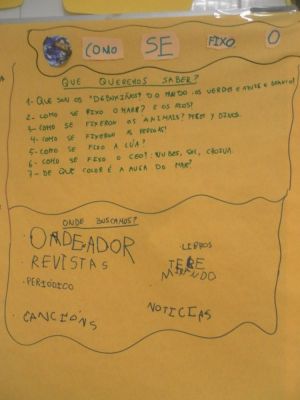 COMO SE FIXO O
QUE QUEREMOS SABER?
1- QUE SON OS "DEBUXIÑOS" DO MUNDO: OS VERDES E AZUIS E BRANCO?
2- COMO SE FIXO O MAR? E OS RIOS?
3- COMO SE FIXERON OS ANIMAIS? PEIXES Y DINOS.
4- COMO SE FIXERON AS PERSOAS?
5- COMO SE FIXO A LÚA?
6- COMO SE FIXO O CEO?: NUBES, SOL, CHOIVA.
7- DE QUE COLOR É A AUGA DO MAR?
ONDE BUSCAMOS?
ORDEADOR
REVISTAS
· PERIÓDICO
CANCIÓNS
· LIBROS
TELE
MIRANDO
NOTICIAS